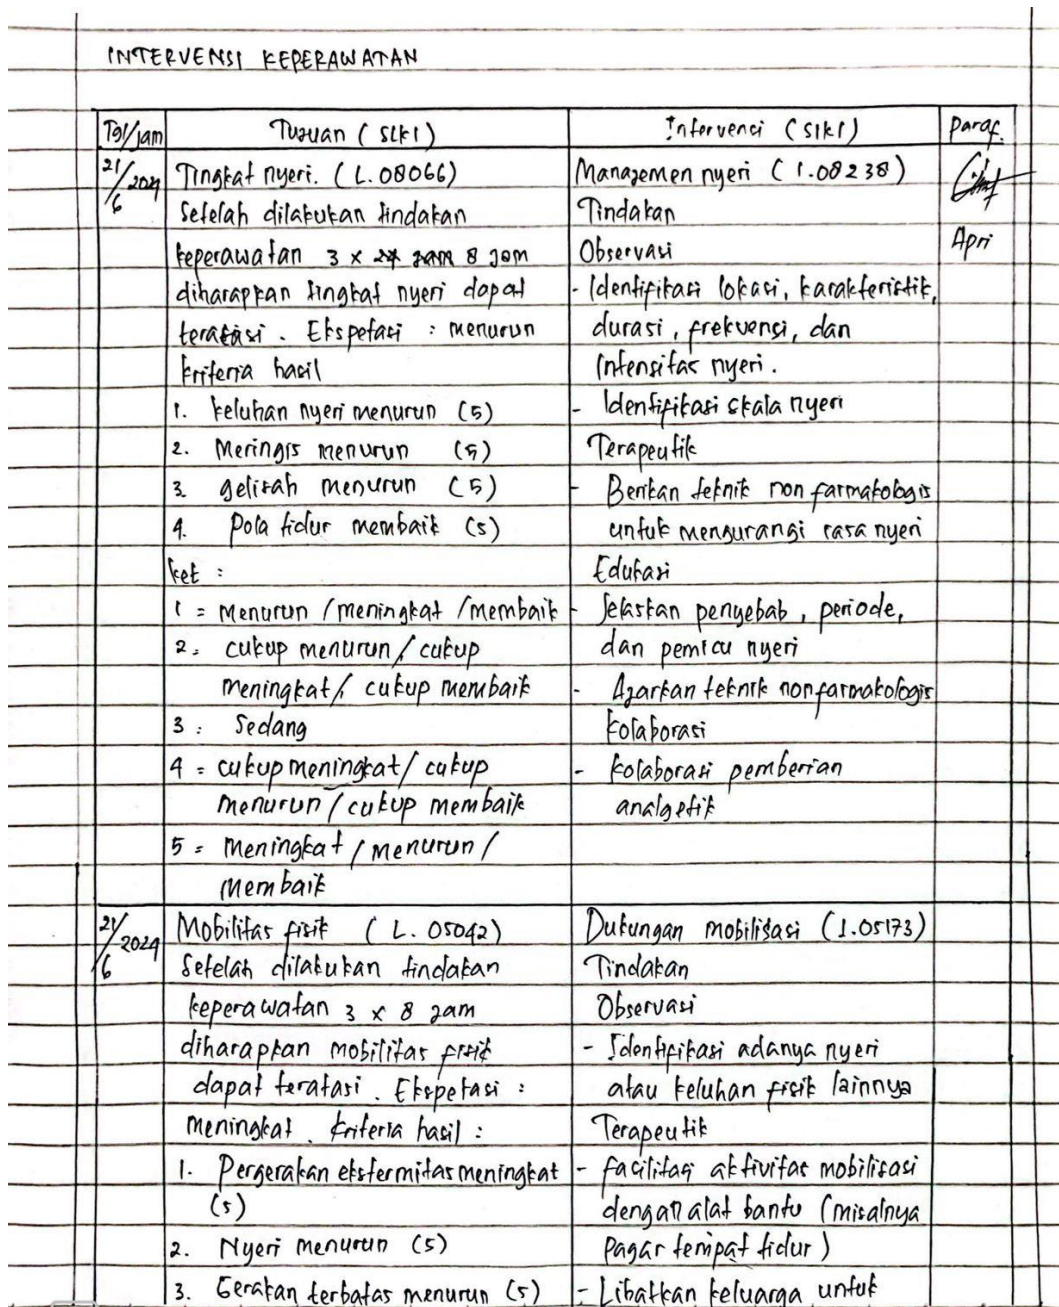 INTERVENSI KEPERAWATAN
Tgl/jam
Tujuan (SLKI)
Intervenci (SIKI)
Paraf.
21/6 2024
Tingkat nyeri. (L.08066)
Setelah dilakukan tindakan
keperawatan 3 x 24 jam 8 jam
diharapkan tingkat nyeri dapat
teratasi. Ekspetasi : menurun
kriteria hasil
1. keluhan nyeri menurun (5)
2. Meringis menurun (5)
3. gelisah menurun (5)
4. Pola tidur membaik (5)
ket :
1 = Menurun / meningkat / membaik
2 = cukup menurun / cukup
meningkat / cukup membaik
3 : Sedang
4 = cukup meningkat / cukup
menurun / cukup membaik
5 = Meningkat / menurun /
membaik
Manajemen nyeri (1.08238)
Tindakan
Observasi
- Identifikasi lokasi, karakteristik,
durasi, frekuensi, dan
Intensitas nyeri.
- Identifikasi skala nyeri
Terapeutik
- Berikan teknik non farmakologis
untuk mengurangi rasa nyeri
Edukasi
- Jelaskan penyebab, periode,
dan pemicu nyeri
- Ajarkan teknik nonfarmakologis
kolaborasi
- kolaborasi pemberian
analgetik
Apri
21/6 2024
Mobilitas fisik (L. 05042)
Setelah dilakukan tindakan
keperawatan 3 x 8 jam
diharapkan mobilitas fisik
dapat teratasi. Ekspetasi :
meningkat. kriteria hasil :
1. Pergerakan ekstermitas meningkat
(5)
2. Nyeri menurun (5)
3. Gerakan terbatas menurun (5)
Dukungan mobilisasi (1.05173)
Tindakan
Observasi
- Identifikasi adanya nyeri
atau keluhan fisik lainnya
Terapeutik
- facilitasi aktivitas mobilisasi
dengan alat bantu (misalnya
Pagar tempat tidur)
- Libatkan keluarga untuk